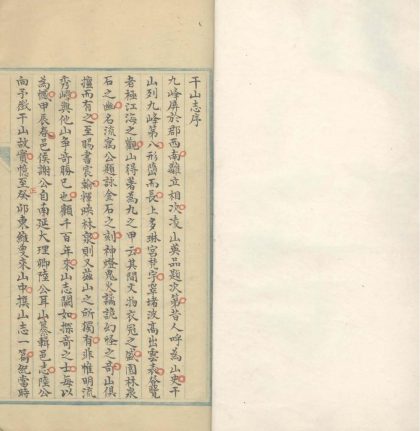 干山志序
九峰屏於郡西南離立相次凌山英品題次第昔人呼為山史干
山列九峰第八形隨而長上多琳宮梵宇窣堵波高出雲表登覽
者極江海之觀山得著為九之甲云其間文物衣冠之盛園林泉
石之幽名流寓公題詠金石之刻神燈鬼火譎詭幻怪之奇山俱
擅而有之至賜書宸翰輝映林泉則又茲山之所獨有非惟明流
秀嶠與他山爭奇勝已也顧千百年來山志闕如探奇之士每以
為憾甲辰春邑侯謝公自南延大理卿陸公耳山纂輯邑志陸公
向予徵干山故實憶至正癸卯東維叟來山中撰山志一篇紀當時